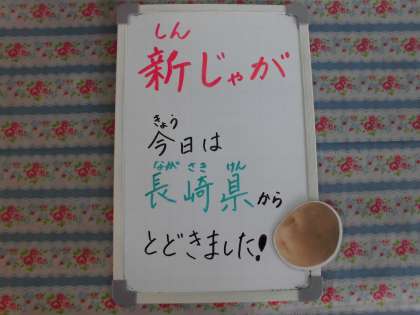 しん
新じゃが
きょう
今日は
ながさきけん
長崎県から
とどきました!